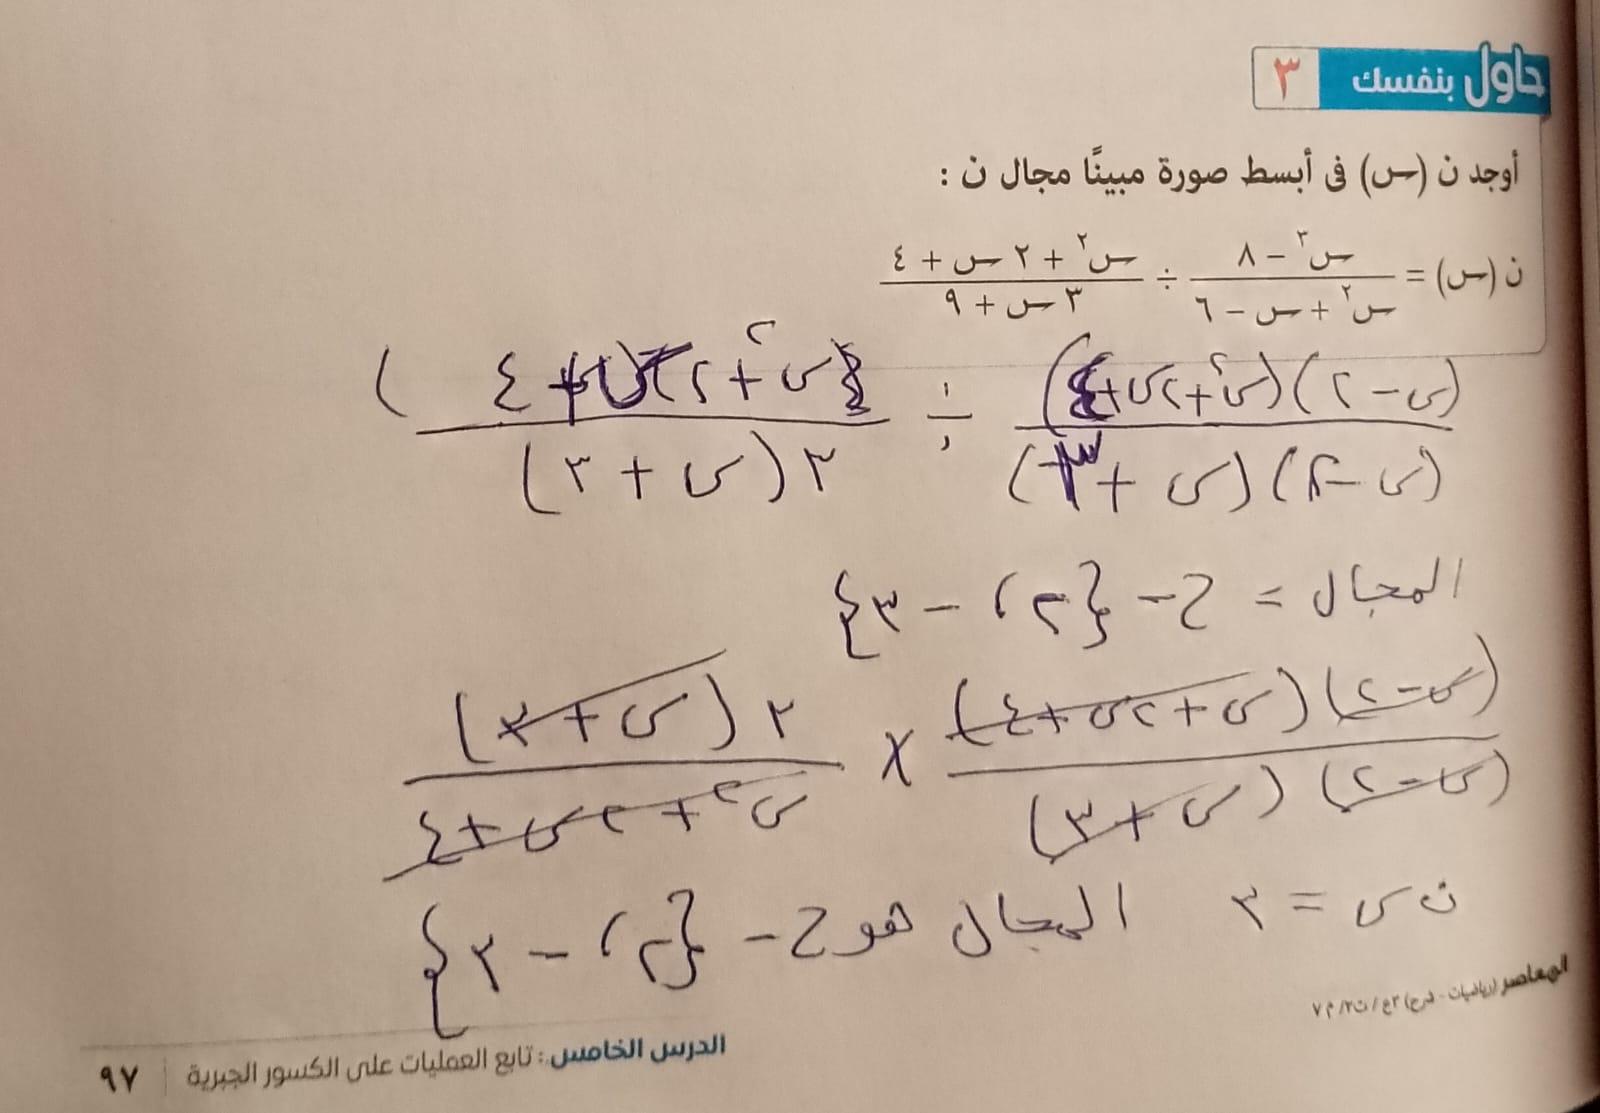 حاول بنفسك ٣
أوجد ن (س) فى أبسط صورة مبينًا مجال ن :
ن (س) = (س٣ − ٨)/(س٢ + س − ٦) ÷ (س٢ + ٢ س + ٤)/(٣ س + ٩)
(س − ٢)(س٢ + ٢س + ٤) ÷ (س٢ + ٢س + ٤)
(س − ٢)(س + ٣) ٣(س + ٣)
المجال = ح − {٢، − ٣}
(س − ٢)(س + ٢س + ٤) × ٣(س + ٣)
(س − ٢)(س + ٣) س٢ + ٢س + ٤
ن س = ٣ المجال هو ح − {٢، − ٣}
المعاصر (رياضيات - شرح) ٣ع / ت٢ / م ٧
الدرس الخامس : تابع العمليات على الكسور الجبرية ٩٧